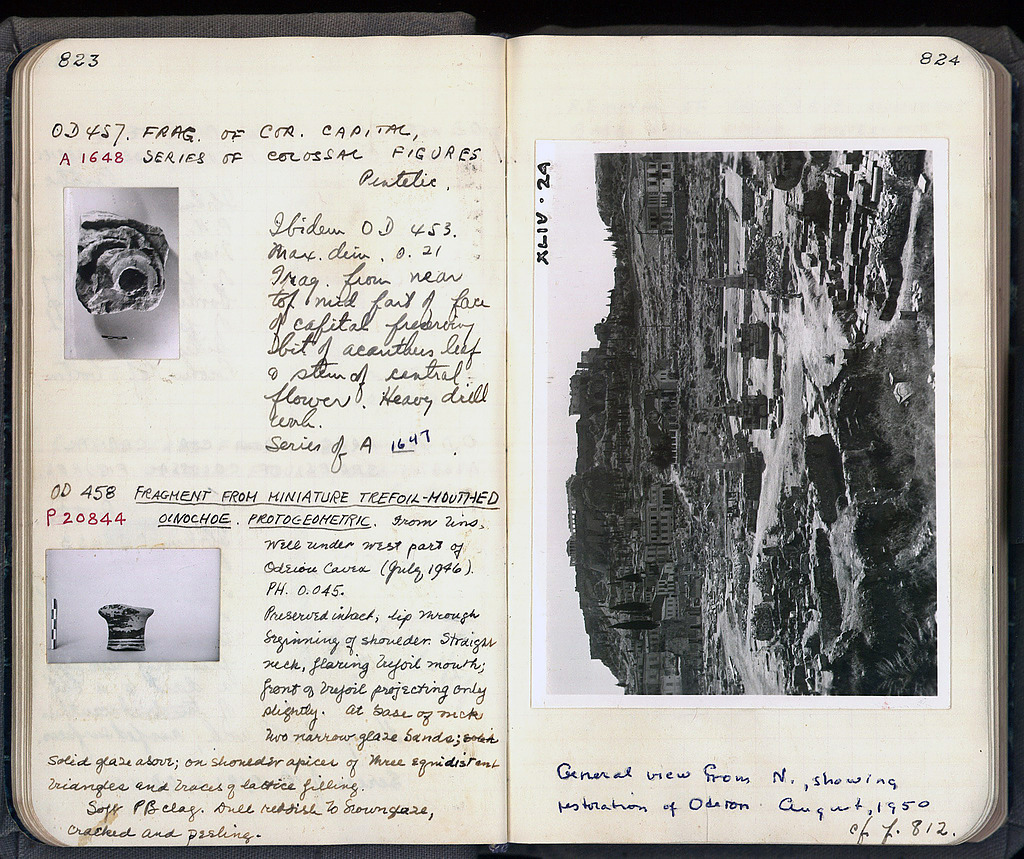 823
OD 457. FRAG. OF COR. CAPITAL,
A 1648 SERIES OF COLOSSAL FIGURES
Pentelic.
Ibidem OD 453.
Max. dim. 0.21
Frag. from near
top mid part of face
of capital preserving
bit of acanthus leaf
& stem of central
flower. Heavy drill
work.
Series of A 1647.
OD 458 FRAGMENT FROM MINIATURE TREFOIL-MOUTHED
P 20844 OINOCHOE. PROTOGEOMETRIC. From
Well under west part of
Odeion Cavea (July 1946).
PH. 0.045.
Preserved intact, lip through
beginning of shoulder. Straight
neck, flaring trefoil mouth;
front of trefoil projecting only
slightly. At base of neck
two narrow glaze bands;
Solid glaze above; on shoulder apices of three equidistant
triangles and traces of lattice filling.
Soft PB clay. Dull reddish to brown glaze,
cracked and peeling.
824
XLIV · 24
General view from N., showing
restoration of Odeion. August, 1950
cf. p. 812.